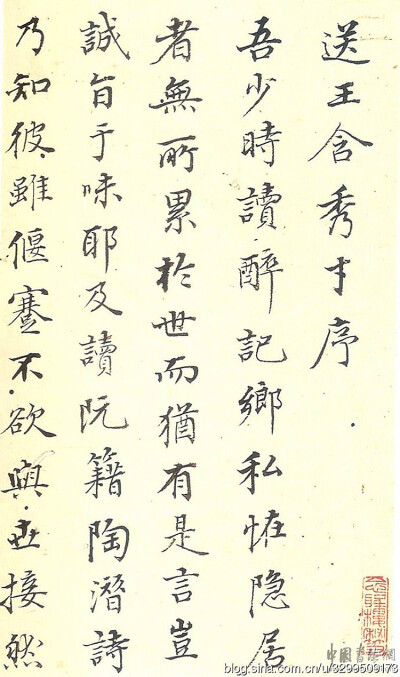 送王含秀才序
吾少時讀醉記鄉私恠隐居
者無所累於世而猶有是言豈
誠旨于味耶及讀阮籍陶潛詩
乃知彼雖偃蹇不欲與世接然
blog.sina.com.cn/u/3299509173